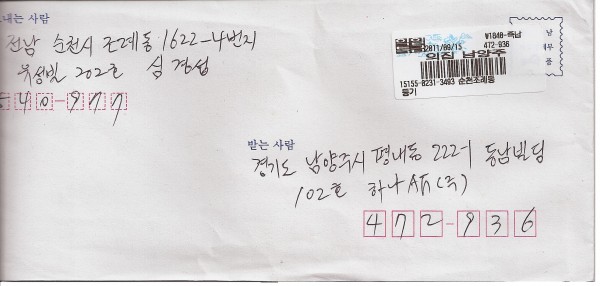 내는 사람
전남 순천시 조례동 1622-4번지
유성빌 202호 심경섭
540-977
₩1840-즉납
2011/09/15 472-936
의집 남양주
15155-8231-3493 순천조례동
등기
받는 사람
경기도 남양주시 평내동 222-1 동남빌딩
102호 하나 (주)
472-936